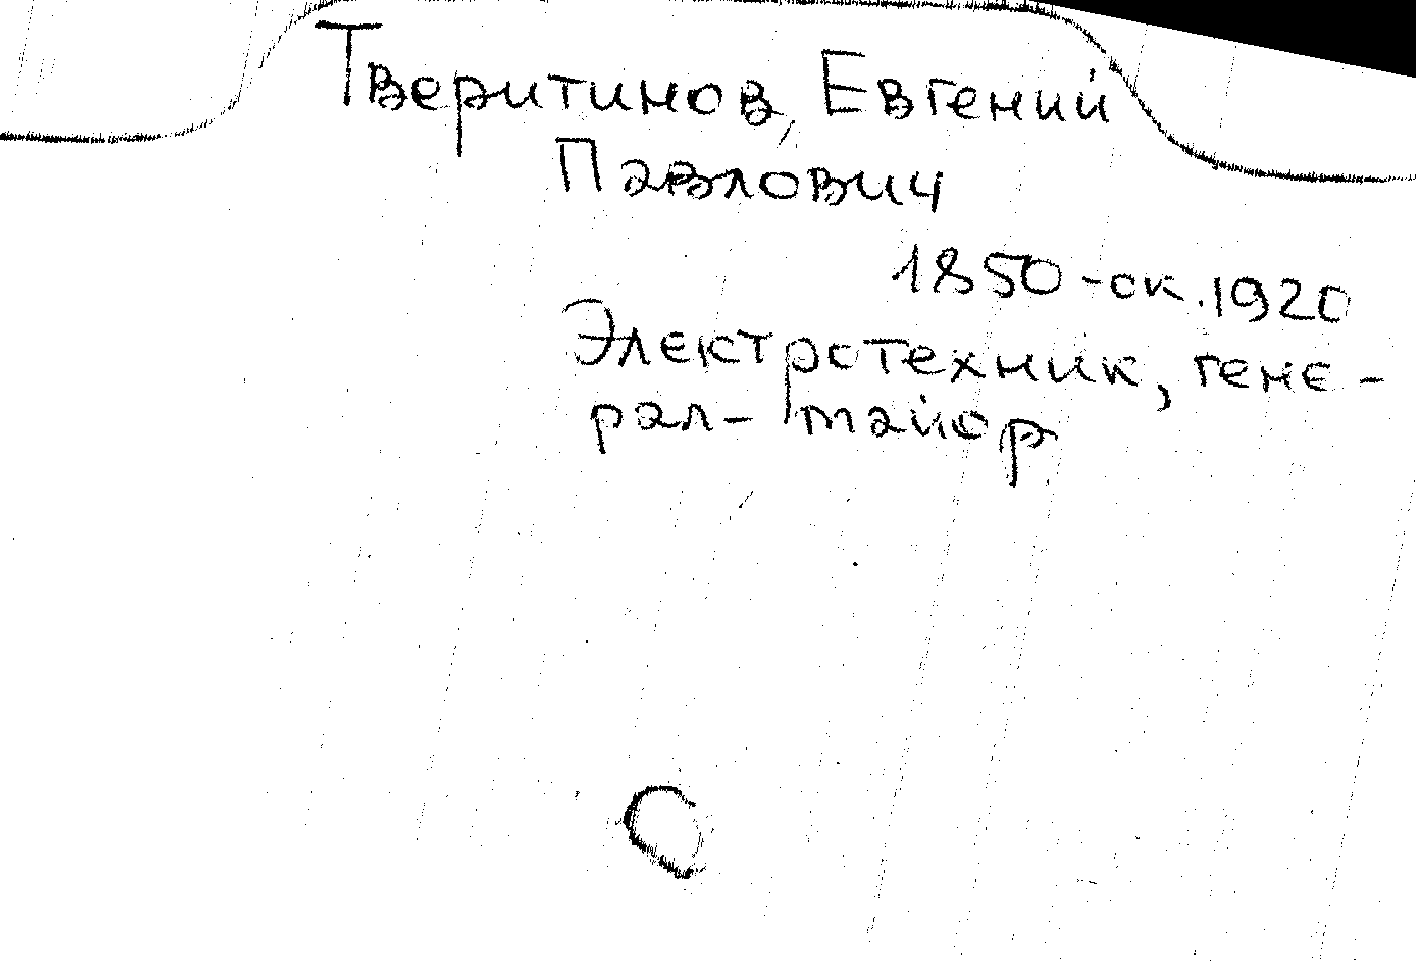 Тверитинов, Евгений
Павлович
1850-ок.1920
Электротехник, гене-
рал-майор